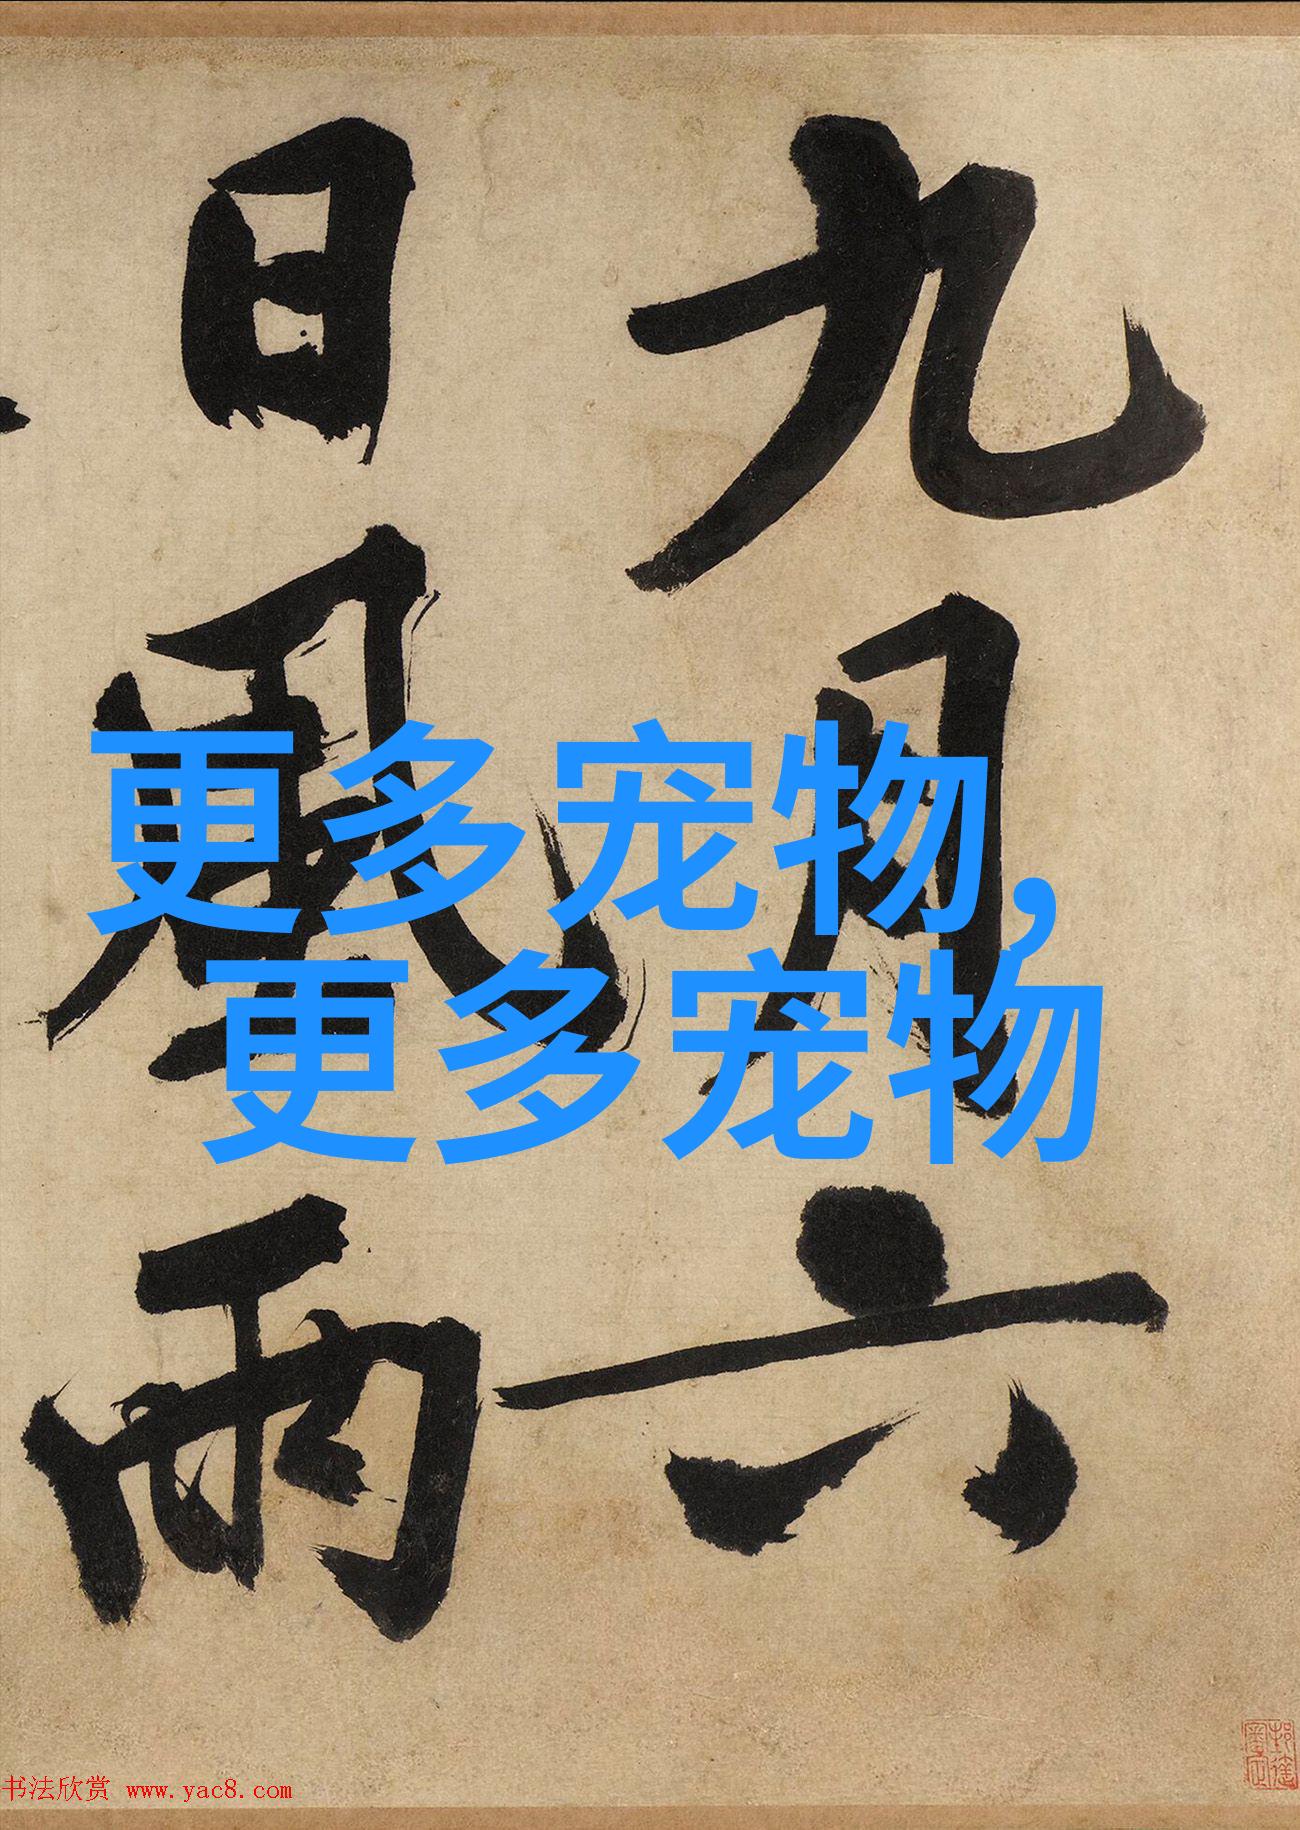 九月六
日風雨
更多宠物,
更多宠物
书法欣赏 www.yac8.com